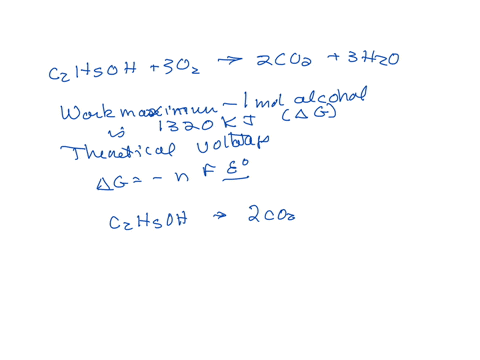 C2H5OH + 3O2 → 2CO2 + 3H2O
Work maximum – 1 mol alcohol
is 1320 KJ (ΔG)
Theoretical voltage
ΔG = - n F ε°
C2H5OH → 2CO2